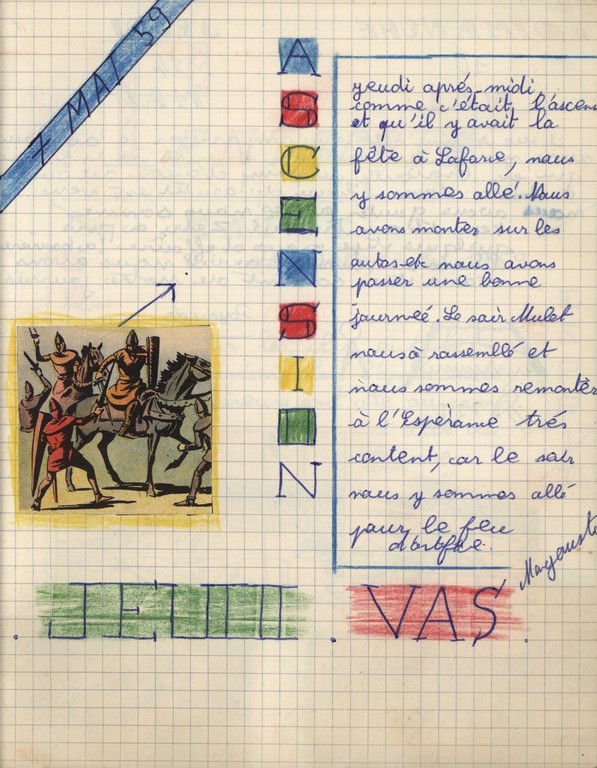 7 MAI 59
ASCENSION
yeudi aprés-midi,
comme c'était, l'ascens
et qu'il y avait la
fête à Lafare, nous
y sommes allé. Nous
avons monter sur les
autos etc nous avons
passer une bonne
journeé. Le soir Mulet
nous à rassemblé et
nous sommes remonter
à l'Espérance trés
content, car le soir
nous y sommes allé
pour le feu
d'artifice.
JEUDI . VAS .